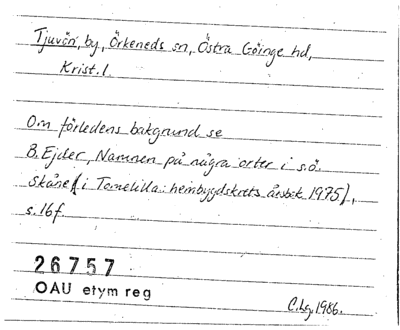 Tjuvön, by, Örkeneds sn, Östra Göinge hd,
Krist. l.
Om förledens bakgrund se
B. Ejder, Namnen på några orter i s.ö.
Skåne (i Tomelilla hembygdskrets årsbok 1975),
s. 16f.
26757
OAU etym reg
C.Lg. 1986.